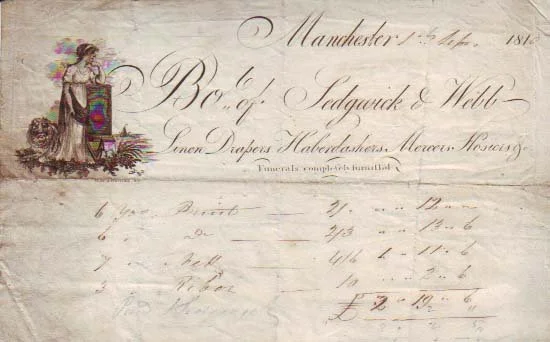 Manchester 181
Bot. of Sedgwick & Webb
Linen Drapers Haberdashers Mercers Hosiers &c
Funerals completely furnished
6 Yds Print 2/ " " 12 "
6 " Do 2/3 " " 13 " 6
7 " 4/6 1 " 11 " 6
3 " Ribon 10 " " 2 " 6
£ 2 " 19 " 6